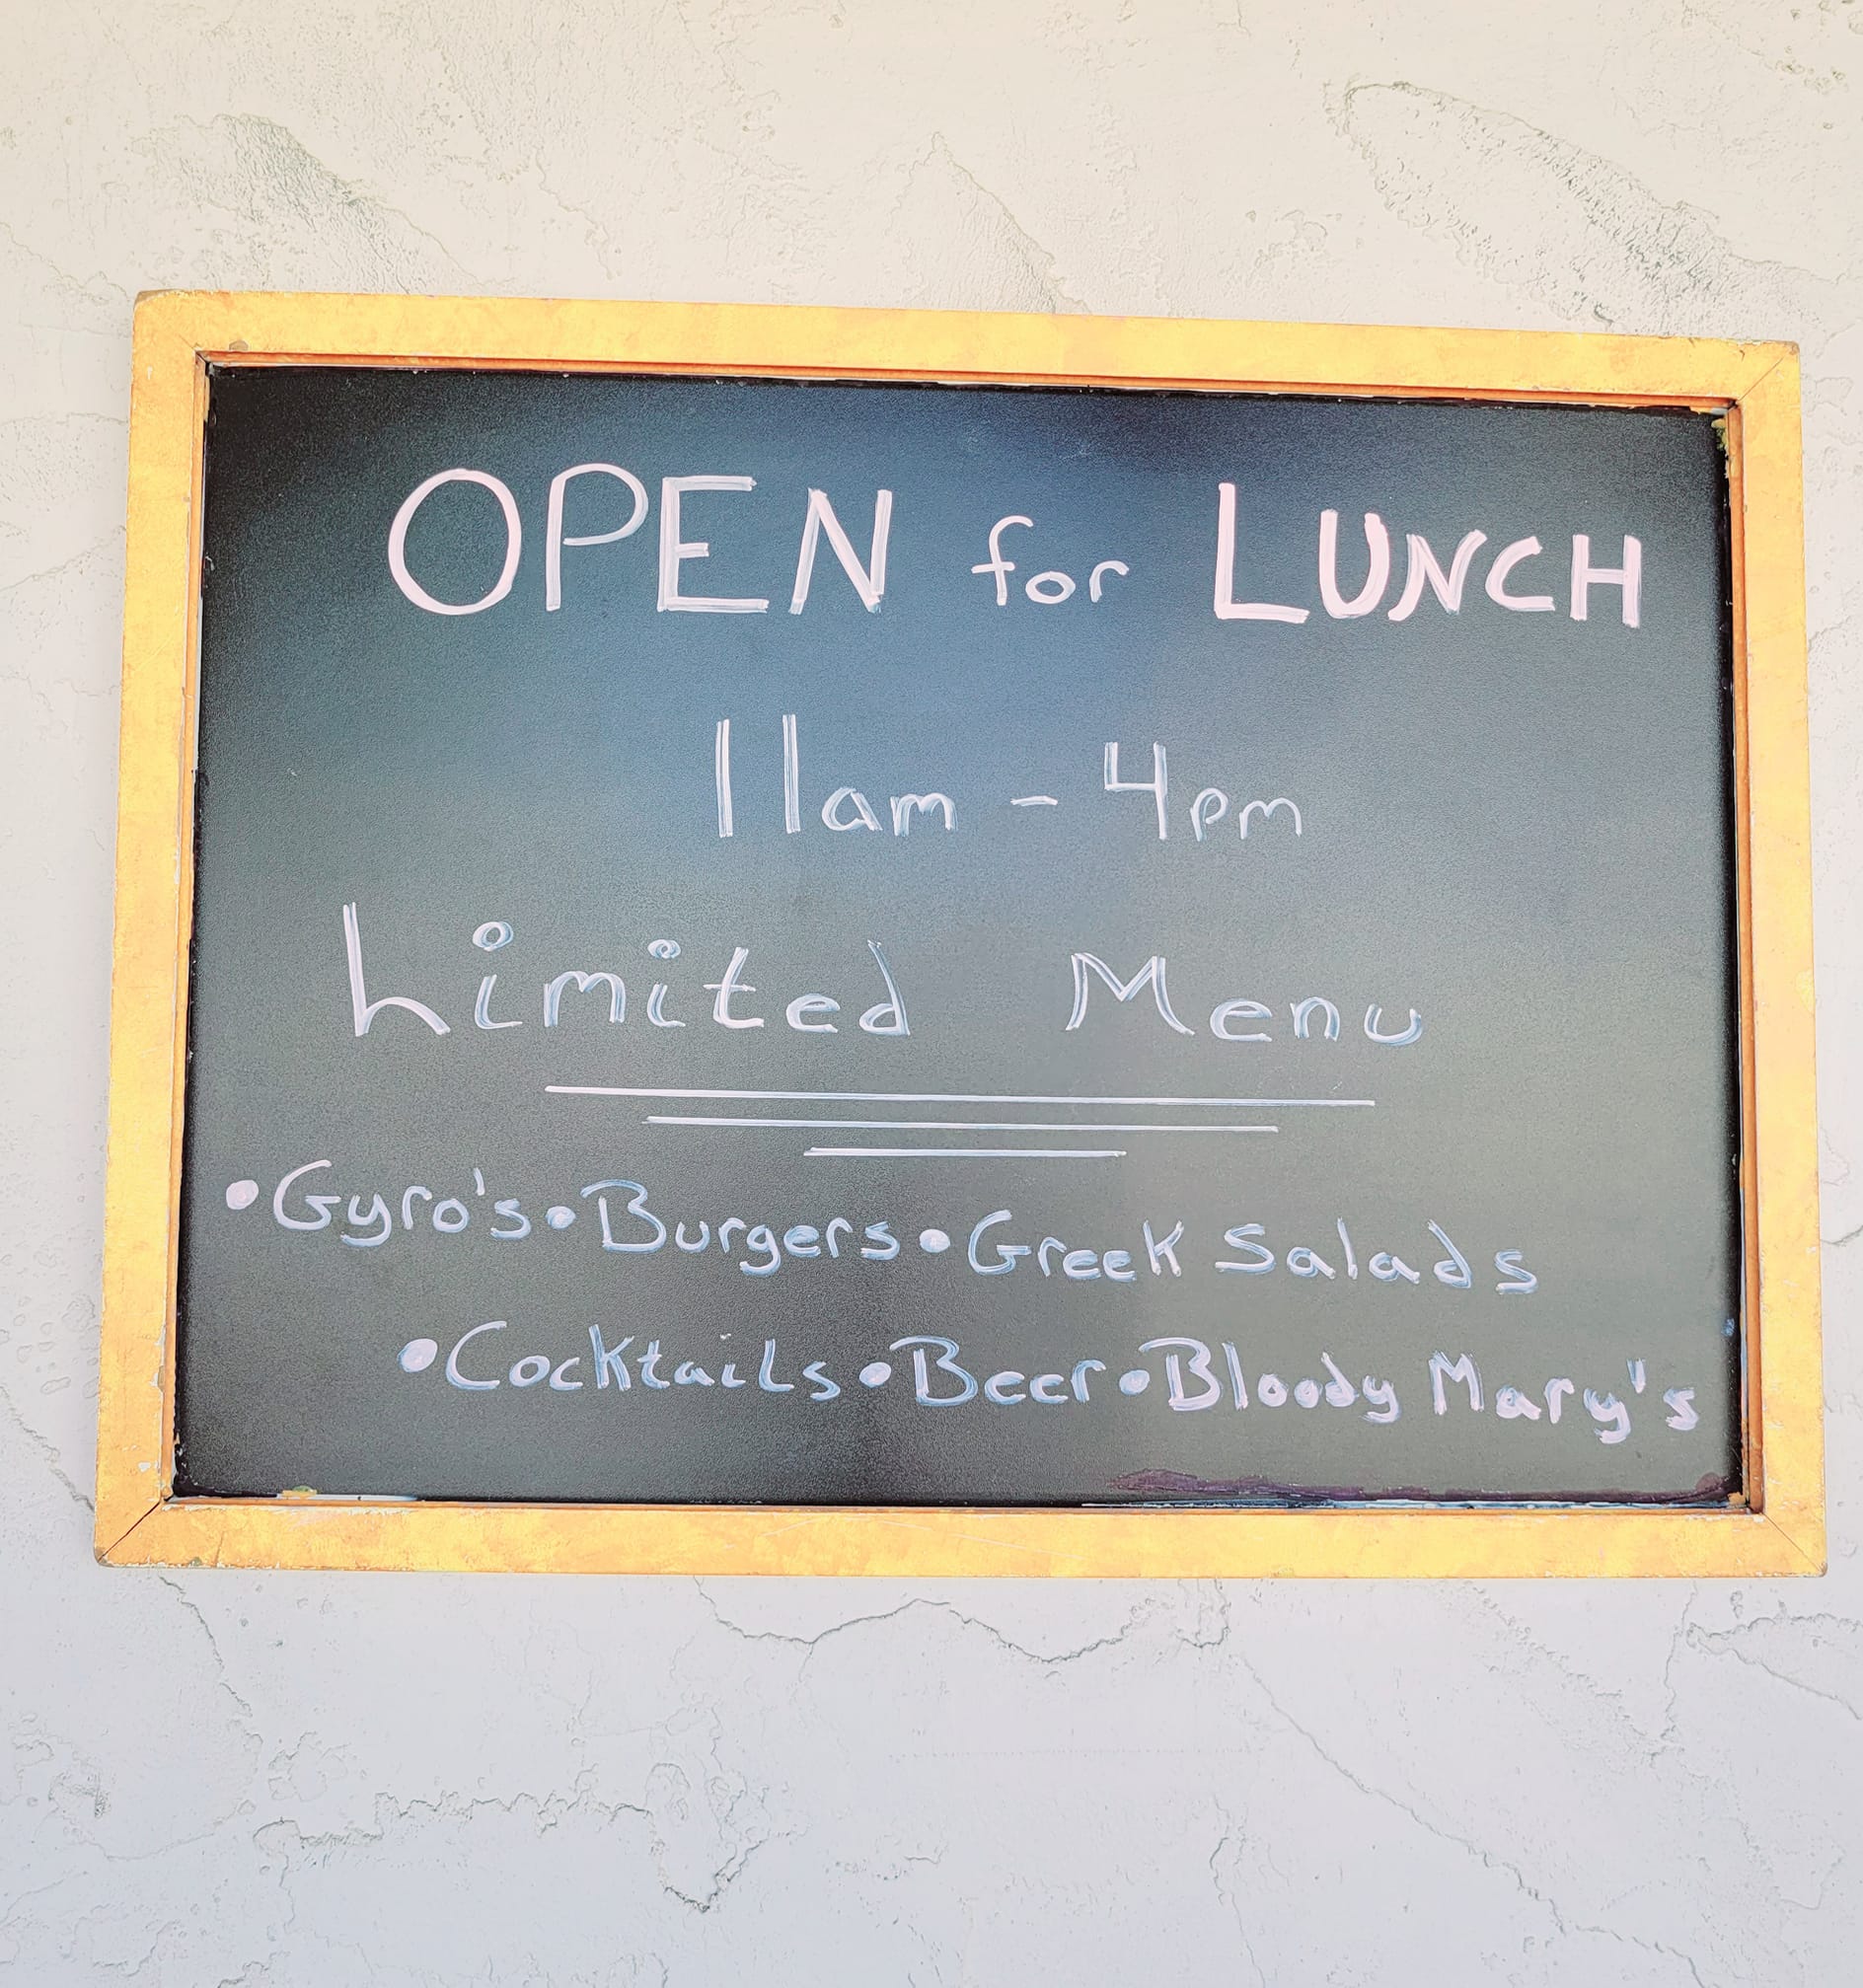 OPEN for LUNCH
11am - 4pm
Limited Menu
• Gyro's • Burgers • Greek Salads
• Cocktails • Beer • Bloody Mary's